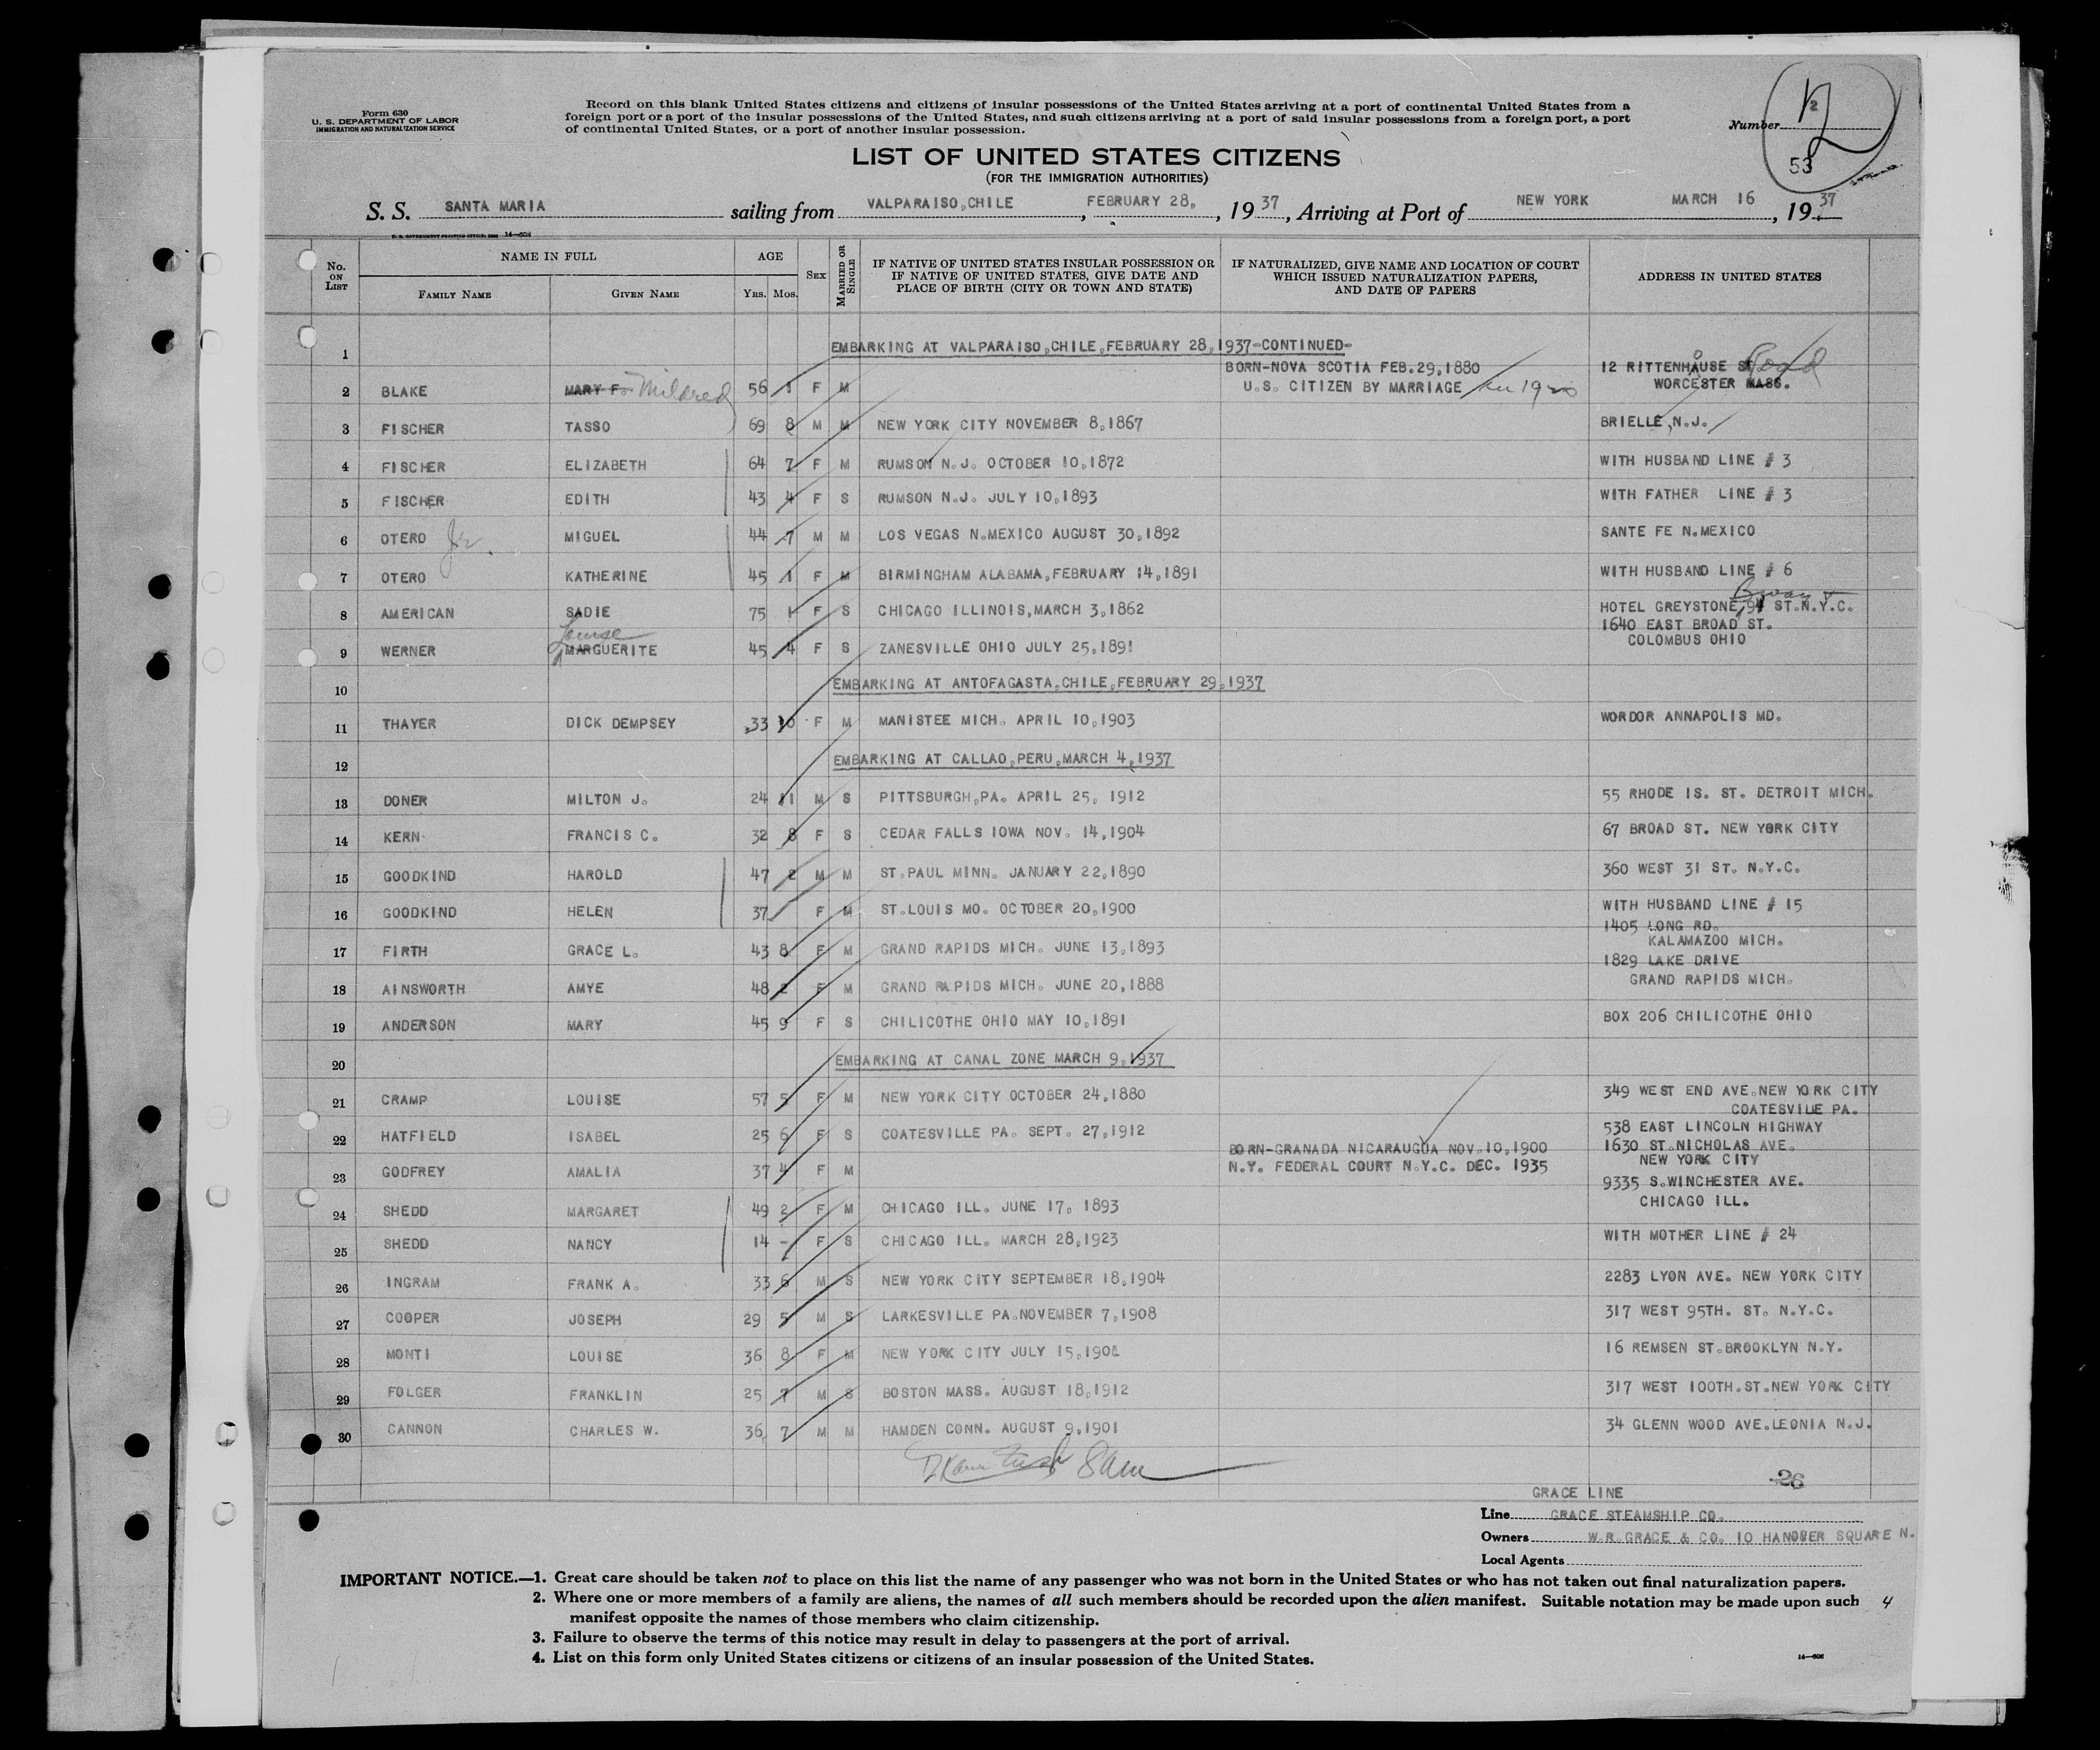 Form 630
U. S. DEPARTMENT OF LABOR
IMMIGRATION AND NATURALIZATION SERVICE
Record on this blank United States citizens and citizens of insular possessions of the United States arriving at a port of continental United States from a
foreign port or a port of the insular possessions of the United States, and such citizens arriving at a port of said insular possessions from a foreign port, a port
of continental United States, or a port of another insular possession.
Number 2
53
LIST OF UNITED STATES CITIZENS
(FOR THE IMMIGRATION AUTHORITIES)
S. S. SANTA MARIA sailing from VALPARAISO,CHILE, FEBRUARY 28, , 19 37, Arriving at Port of NEW YORK MARCH 16, 19 37
No. ON LIST NAME IN FULL FAMILY NAME GIVEN NAME AGE YRS. MOS. SEX MARRIED OR SINGLE IF NATIVE OF UNITED STATES INSULAR POSSESSION OR IF NATIVE OF UNITED STATES, GIVE DATE AND PLACE OF BIRTH (CITY OR TOWN AND STATE) IF NATURALIZED, GIVE NAME AND LOCATION OF COURT WHICH ISSUED NATURALIZATION PAPERS, AND DATE OF PAPERS ADDRESS IN UNITED STATES
1 EMBARKING AT VALPARAISO,CHILE,FEBRUARY 28,1937-CONTINUED-
BORN-NOVA SCOTIA FEB.29,1880 12 RITTENHOUSE ST Road
2 BLAKE MARY F. Mildred 56 1 F M U.S. CITIZEN BY MARRIAGE WORCESTER MASS.
3 FISCHER TASSO 69 8 M M NEW YORK CITY NOVEMBER 8,1867 BRIELLE,N.J.
4 FISCHER ELIZABETH 64 7 F M RUMSON N.J. OCTOBER 10,1872 WITH HUSBAND LINE # 3
5 FISCHER EDITH 43 4 F S RUMSON N.J. JULY 10,1893 WITH FATHER LINE # 3
6 OTERO Jr. MIGUEL 44 7 M M LOS VEGAS N.MEXICO AUGUST 30,1892 SANTE FE N.MEXICO
7 OTERO KATHERINE 45 1 F M BIRMINGHAM ALABAMA,FEBRUARY 14,1891 WITH HUSBAND LINE # 6
Bway +
8 AMERICAN SADIE 75 1 F S CHICAGO ILLINOIS,MARCH 3,1862 HOTEL GREYSTONE,94 ST.N.Y.C.
Louise 1640 EAST BROAD ST.
9 WERNER MARGUERITE 45 4 F S ZANESVILLE OHIO JULY 25,1891 COLOMBUS OHIO
10 EMBARKING AT ANTOFAGASTA,CHILE,FEBRUARY 29,1937
11 THAYER DICK DEMPSEY 33 10 F M MANISTEE MICH. APRIL 10,1903 WORDOR ANNAPOLIS MD.
12 EMBARKING AT CALLAO,PERU,MARCH 4,1937
13 DONER MILTON J. 24 11 M S PITTSBURGH,PA. APRIL 25, 1912 55 RHODE IS. ST. DETROIT MICH.
14 KERN FRANCIS C. 32 8 F S CEDAR FALLS IOWA NOV. 14,1904 67 BROAD ST. NEW YORK CITY
15 GOODKIND HAROLD 47 2 M M ST.PAUL MINN. JANUARY 22,1890 360 WEST 31 ST. N.Y.C.
16 GOODKIND HELEN 37 F M ST.LOUIS MO. OCTOBER 20,1900 WITH HUSBAND LINE # 15
1405 LONG RD.
17 FIRTH GRACE L. 43 8 F M GRAND RAPIDS MICH. JUNE 13,1893 KALAMAZOO MICH.
1829 LAKE DRIVE
18 AINSWORTH AMYE 48 2 F M GRAND RAPIDS MICH. JUNE 20,1888 GRAND RAPIDS MICH.
19 ANDERSON MARY 45 9 F S CHILICOTHE OHIO MAY 10,1891 BOX 206 CHILICOTHE OHIO
20 EMBARKING AT CANAL ZONE MARCH 9,1937
21 CRAMP LOUISE 57 5 F M NEW YORK CITY OCTOBER 24,1880 349 WEST END AVE.NEW YORK CITY
COATESVILE PA.
22 HATFIELD ISABEL 25 6 F S COATESVILLE PA. SEPT. 27,1912 538 EAST LINCOLN HIGHWAY
BORN-GRANADA NICARAUGUA NOV.10,1900 1630 ST.NICHOLAS AVE.
23 GODFREY AMALIA 37 4 F M N.Y. FEDERAL COURT N.Y.C. DEC. 1935 NEW YORK CITY
9335 S.WINCHESTER AVE.
24 SHEDD MARGARET 49 2 F M CHICAGO ILL. JUNE 17, 1893 CHICAGO ILL.
25 SHEDD NANCY 14 - F S CHICAGO ILL. MARCH 28,1923 WITH MOTHER LINE # 24
26 INGRAM FRANK A. 33 6 M S NEW YORK CITY SEPTEMBER 18,1904 2283 LYON AVE. NEW YORK CITY
27 COOPER JOSEPH 29 5 M S LARKESVILLE PA.NOVEMBER 7,1908 317 WEST 95TH. ST. N.Y.C.
28 MONTI LOUISE 36 8 F M NEW YORK CITY JULY 15, 16 REMSEN ST.BROOKLYN N.Y.
29 FOLGER FRANKLIN 25 7 M S BOSTON MASS. AUGUST 18,1912 317 WEST 100TH.ST.NEW YORK CITY
30 CANNON CHARLES W. 36 7 M M HAMDEN CONN. AUGUST 9,1901 34 GLENN WOOD AVE.LEONIA N.J.
26
GRACE LINE
Line GRACE STEAMSHIP CO.
Owners W.R.GRACE & CO. 10 HANOVER SQUARE N.
Local Agents
IMPORTANT NOTICE.—1. Great care should be taken not to place on this list the name of any passenger who was not born in the United States or who has not taken out final naturalization papers.
2. Where one or more members of a family are aliens, the names of all such members should be recorded upon the alien manifest. Suitable notation may be made upon such 4
manifest opposite the names of those members who claim citizenship.
3. Failure to observe the terms of this notice may result in delay to passengers at the port of arrival.
4. List on this form only United States citizens or citizens of an insular possession of the United States.